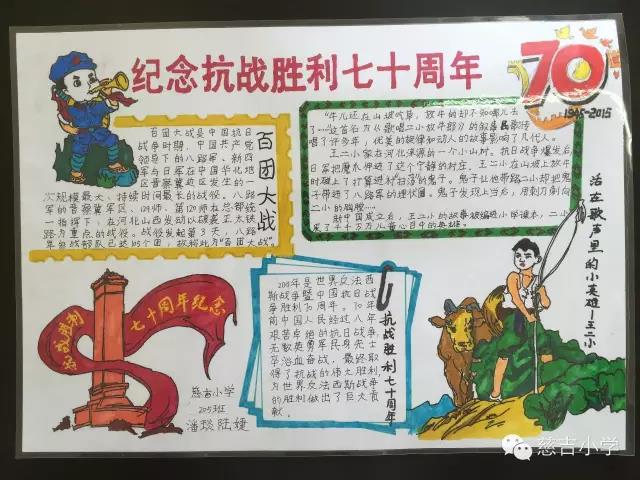 纪念抗战胜利七十周年
70
1945-2015
百团大战
百团大战是中国抗日
战争时期，中国共产党
领导下的八路军、新四
军与日军在中国华北地
区晋察冀边区发生的一
次规模最大、持续时间最长的战役。八路
军的晋察冀军区、129师、第120师在总部统
一指挥下，
路为重点的战役。战役发起第3天，八路
军参战部队已达105个团，故称此为“百团大战”
“牛儿还在山坡吃草，放牛的却不知哪儿去
了……”这首名为《歌唱二小放牛郎》的叙事
唱了许多年，优美的旋律和动人的故事影响了几代人。
王二小家在河北涞源的一个小山村。抗日战争爆发后，
日军把魔爪伸进了这个宁静的村庄。王二小在山坡上放牛
时碰上了打算进村扫荡的鬼子。鬼子让他带路二小却把鬼
子带进了八路军的埋伏圈。鬼子发现上当后，用刺刀刺向
二小的胸膛……
新中国成立后，王二小的故事被编进小学课本，二小
来了千千万万人童心目中的英雄。
活在歌声里的小英雄—王二小
抗战胜利
七十周年纪念
2015年是世界反法西
斯战争暨中国抗日战
争胜利70周年。70年
前中国人民经过八年
艰苦卓绝的抗日战争，
无数英勇军民身先士
卒浴血奋战，最终取
得了抗战的伟大胜利
为世界反法西斯战争
的胜利做出了巨大贡
献。
抗战胜利七十周年
慈吉小学
205班
潘琰陆婕
慈吉小学